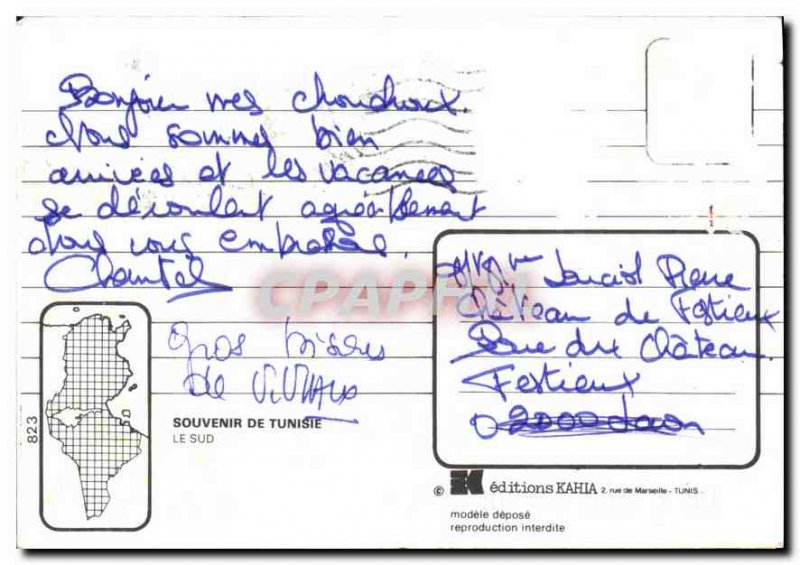 Bonjour mes chouchoux.
Nous sommes bien
arrivées et les vacances
se déroulent agréablement
Nous vous embrassons.
Chantal
Gros bisous
de
Pierre
Château de Festieux
Rue du Château
Festieux
02000 Laon
CPAPHIL
823
SOUVENIR DE TUNISIE
LE SUD
© éditions KAHIA 2, rue de Marseille - TUNIS
modèle déposé
reproduction interdite